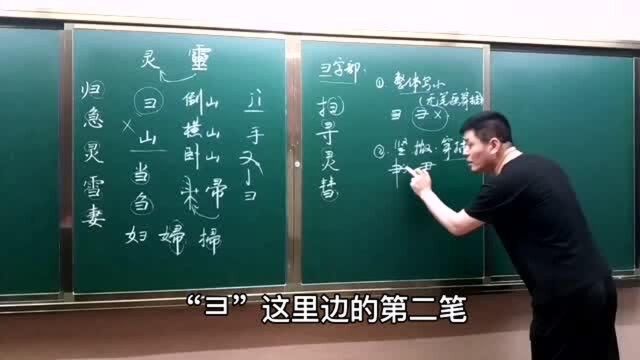 灵 靈
归急灵雪妻
彐
×山
当
刍
倒山
横山
卧山
帚
手
彐
妇 婦 掃
彐字部:
扫寻灵彗
①.整体写小
(尤笔画穿插)
彐 ×
②.竖撇.穿插
“彐”这里边的第二笔